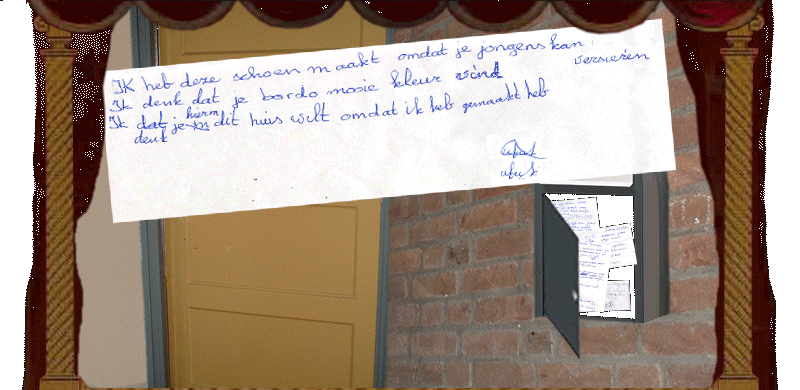 IK heb deze schoen maakt omdat je jongens kan versieren
Ik denk dat je bordo mooie kleur vind
Ik dat je hierm dit huis wilt omdat ik heb gemaakt heb
denk